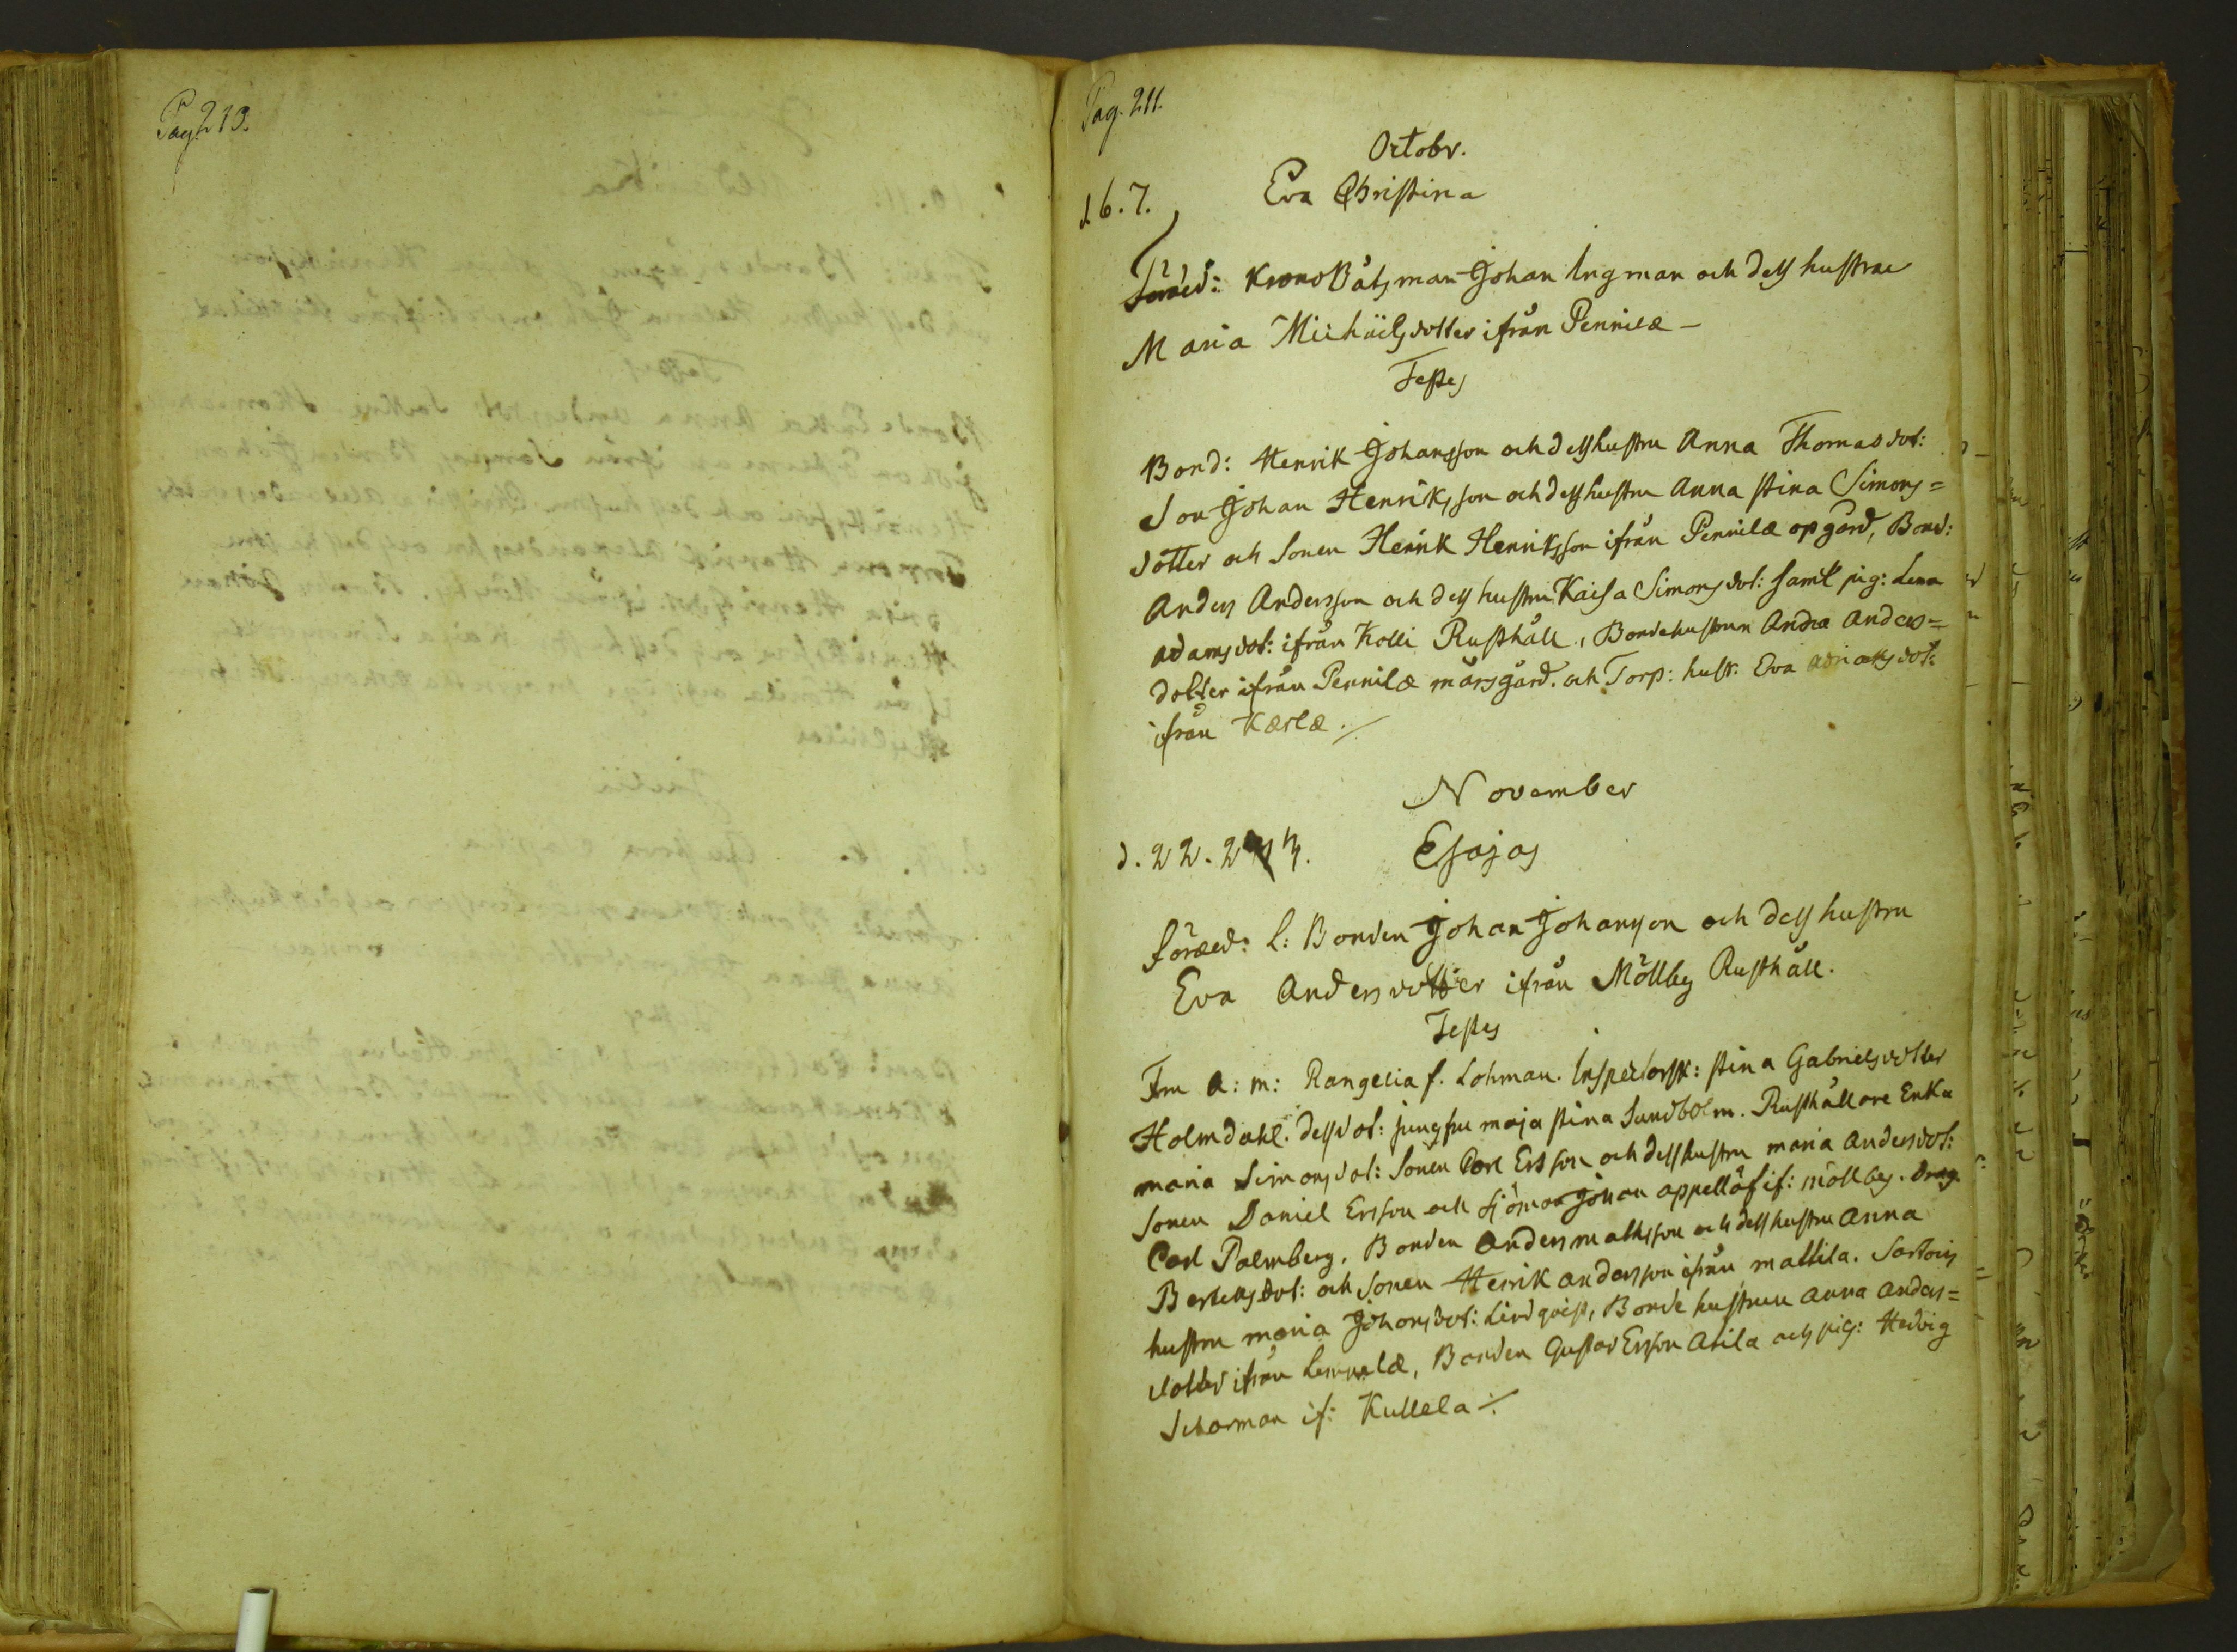 Pag. 210.
Pag. 211.
Octobr.
d 6. 7. Eva Christina
Föräld: Krono Båtsman Johan Ingman och dess hustru
Maria Michäelsdotter ifrån Pennilæ -
Testes
Bond: Henrik Johansson och dess hustru Anna Thomasdot:
Son Johan Henriksson och dess hustru Anna Stina Simons=
dotter och Sonen Henrik Henriksson ifrån Pennilæ opgård, Bond:
Anders Andersson och dess hustru Kaisa Simonsdot: samt pig: Lena
adamsdot: ifrån Kolli Rusthåll, Bondehustrun Anna Anders=
dotter ifrån Pennilæ märsgård. och Torp: hust: Eva
ifrån Kærlæ ./.
November
d. 22. 23. Esajas
föräld: L: Bonden Johan Johansson och dess hustru
Eva Andersdotter ifrån Möllby Rusthåll.
Testes
Fru A: M: Rangelia f. Lohman. Inspectorsk: Stina Gabrielsdotter
Holmdahl. dess dot: jungfru maja Stina Sundholm. Rusthållare Enka
maria Simonsdot: Sonen Carl Ersson och dess hustru maria andersdot:
Sonen Daniel Ersson och Sjöman Johan appellöf if: möllby. Drag.
Carl Palmberg. Bonden Anders mathsson och dess hustru Anna
Bertilsdot: och Sonen Henrik andersson ifrån mattila.
hustru maria Johansdot: Lindqvist, Bonde hustrun anna anders=
dotter ifrån Lempelæ, Bonden Gustav Ersson Atila och pig: Hedvig
Scharman if: Kullela ./.